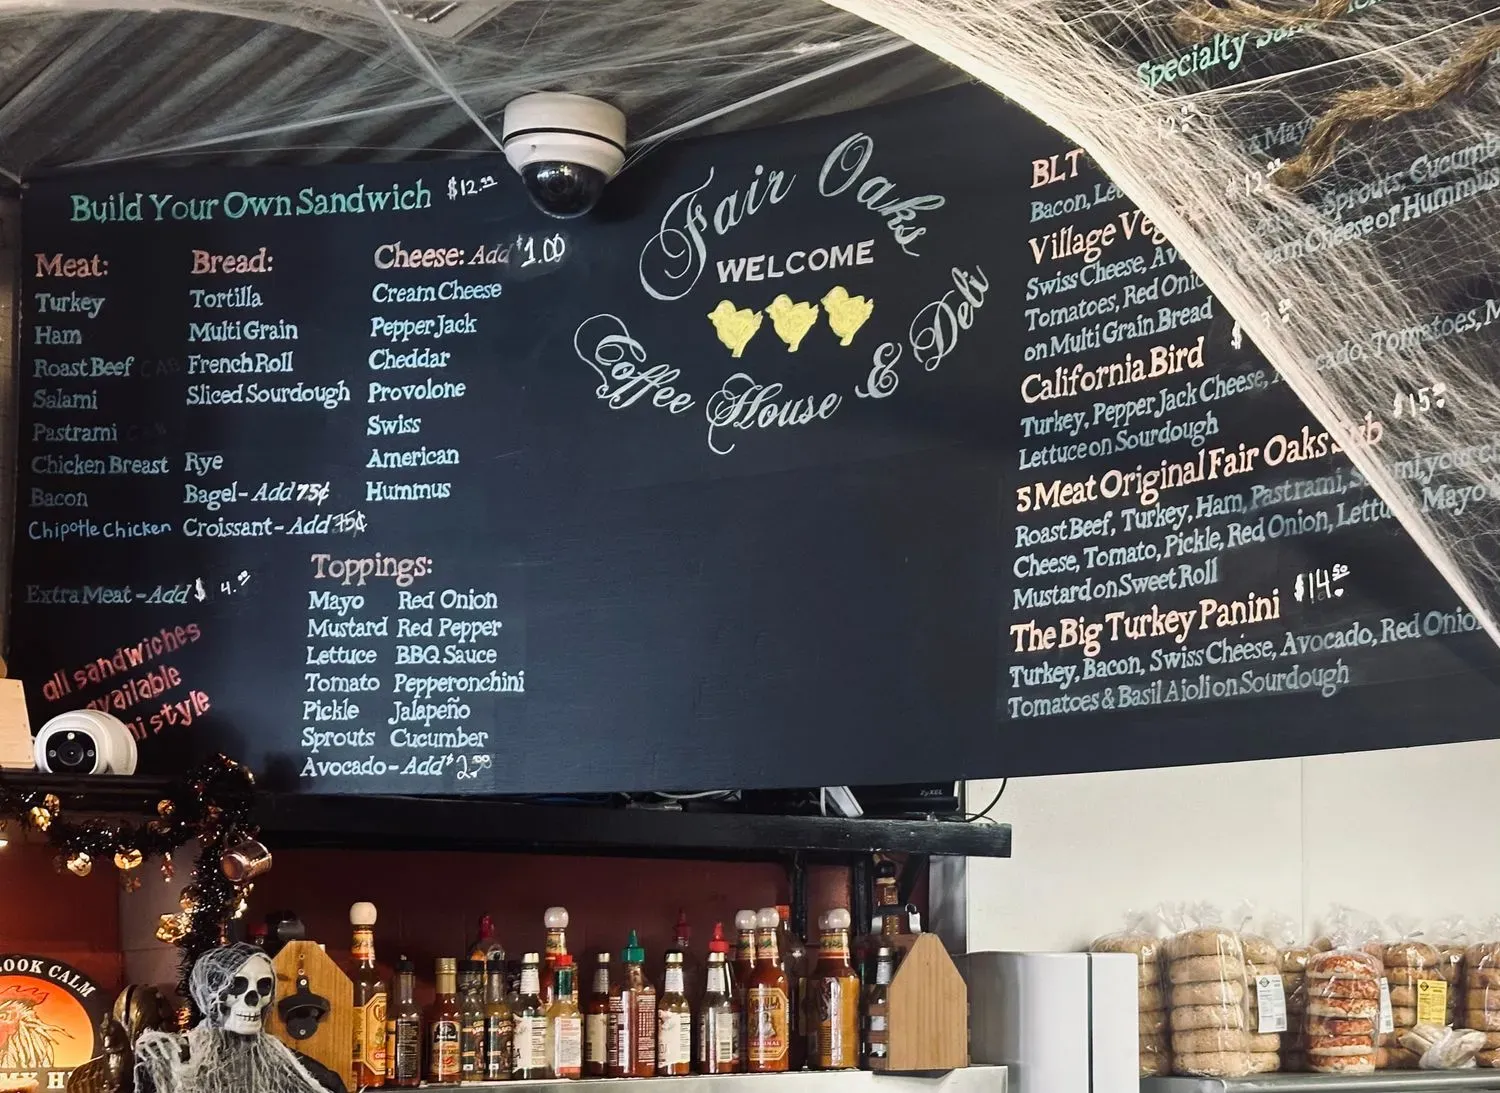 Build Your Own Sandwich $12.99
Meat:
Turkey
Ham
Roast Beef
Salami
Pastrami
Chicken Breast
Bacon
Chipotle Chicken
Extra Meat - Add $4.00
all sandwiches
available
style
Bread:
Tortilla
Multi Grain
French Roll
Sliced Sourdough
Rye
Bagel - Add 75¢
Croissant - Add 75¢
Cheese: Add $1.00
Cream Cheese
Pepper Jack
Cheddar
Provolone
Swiss
American
Hummus
Toppings:
Mayo
Mustard
Lettuce
Tomato
Pickle
Sprouts
Avocado - Add $2.00
Red Onion
Red Pepper
BBQ Sauce
Pepperonchini
Jalapeño
Cucumber
Fair Oaks
WELCOME
Coffee House & Deli
Specialty
BLT
Bacon,
Village
Swiss Cheese, Sprouts, Cucumber
Tomatoes, Red Cream Cheese or Hummus
on Multi Grain Bread
California Bird
Turkey, Pepper Jack Cheese, Tomatoes,
Lettuce on Sourdough
5 Meat Original Fair Oaks Sub $15
Roast Beef, Turkey, Ham, Pastrami, Salami, your
Cheese, Tomato, Pickle, Red Onion, Mayo
Mustard on Sweet Roll
The Big Turkey Panini $14.50
Turkey, Bacon, Swiss Cheese, Avocado, Red Onion
Tomatoes & Basil Aioli on Sourdough
ZyXEL
LOOK CALM